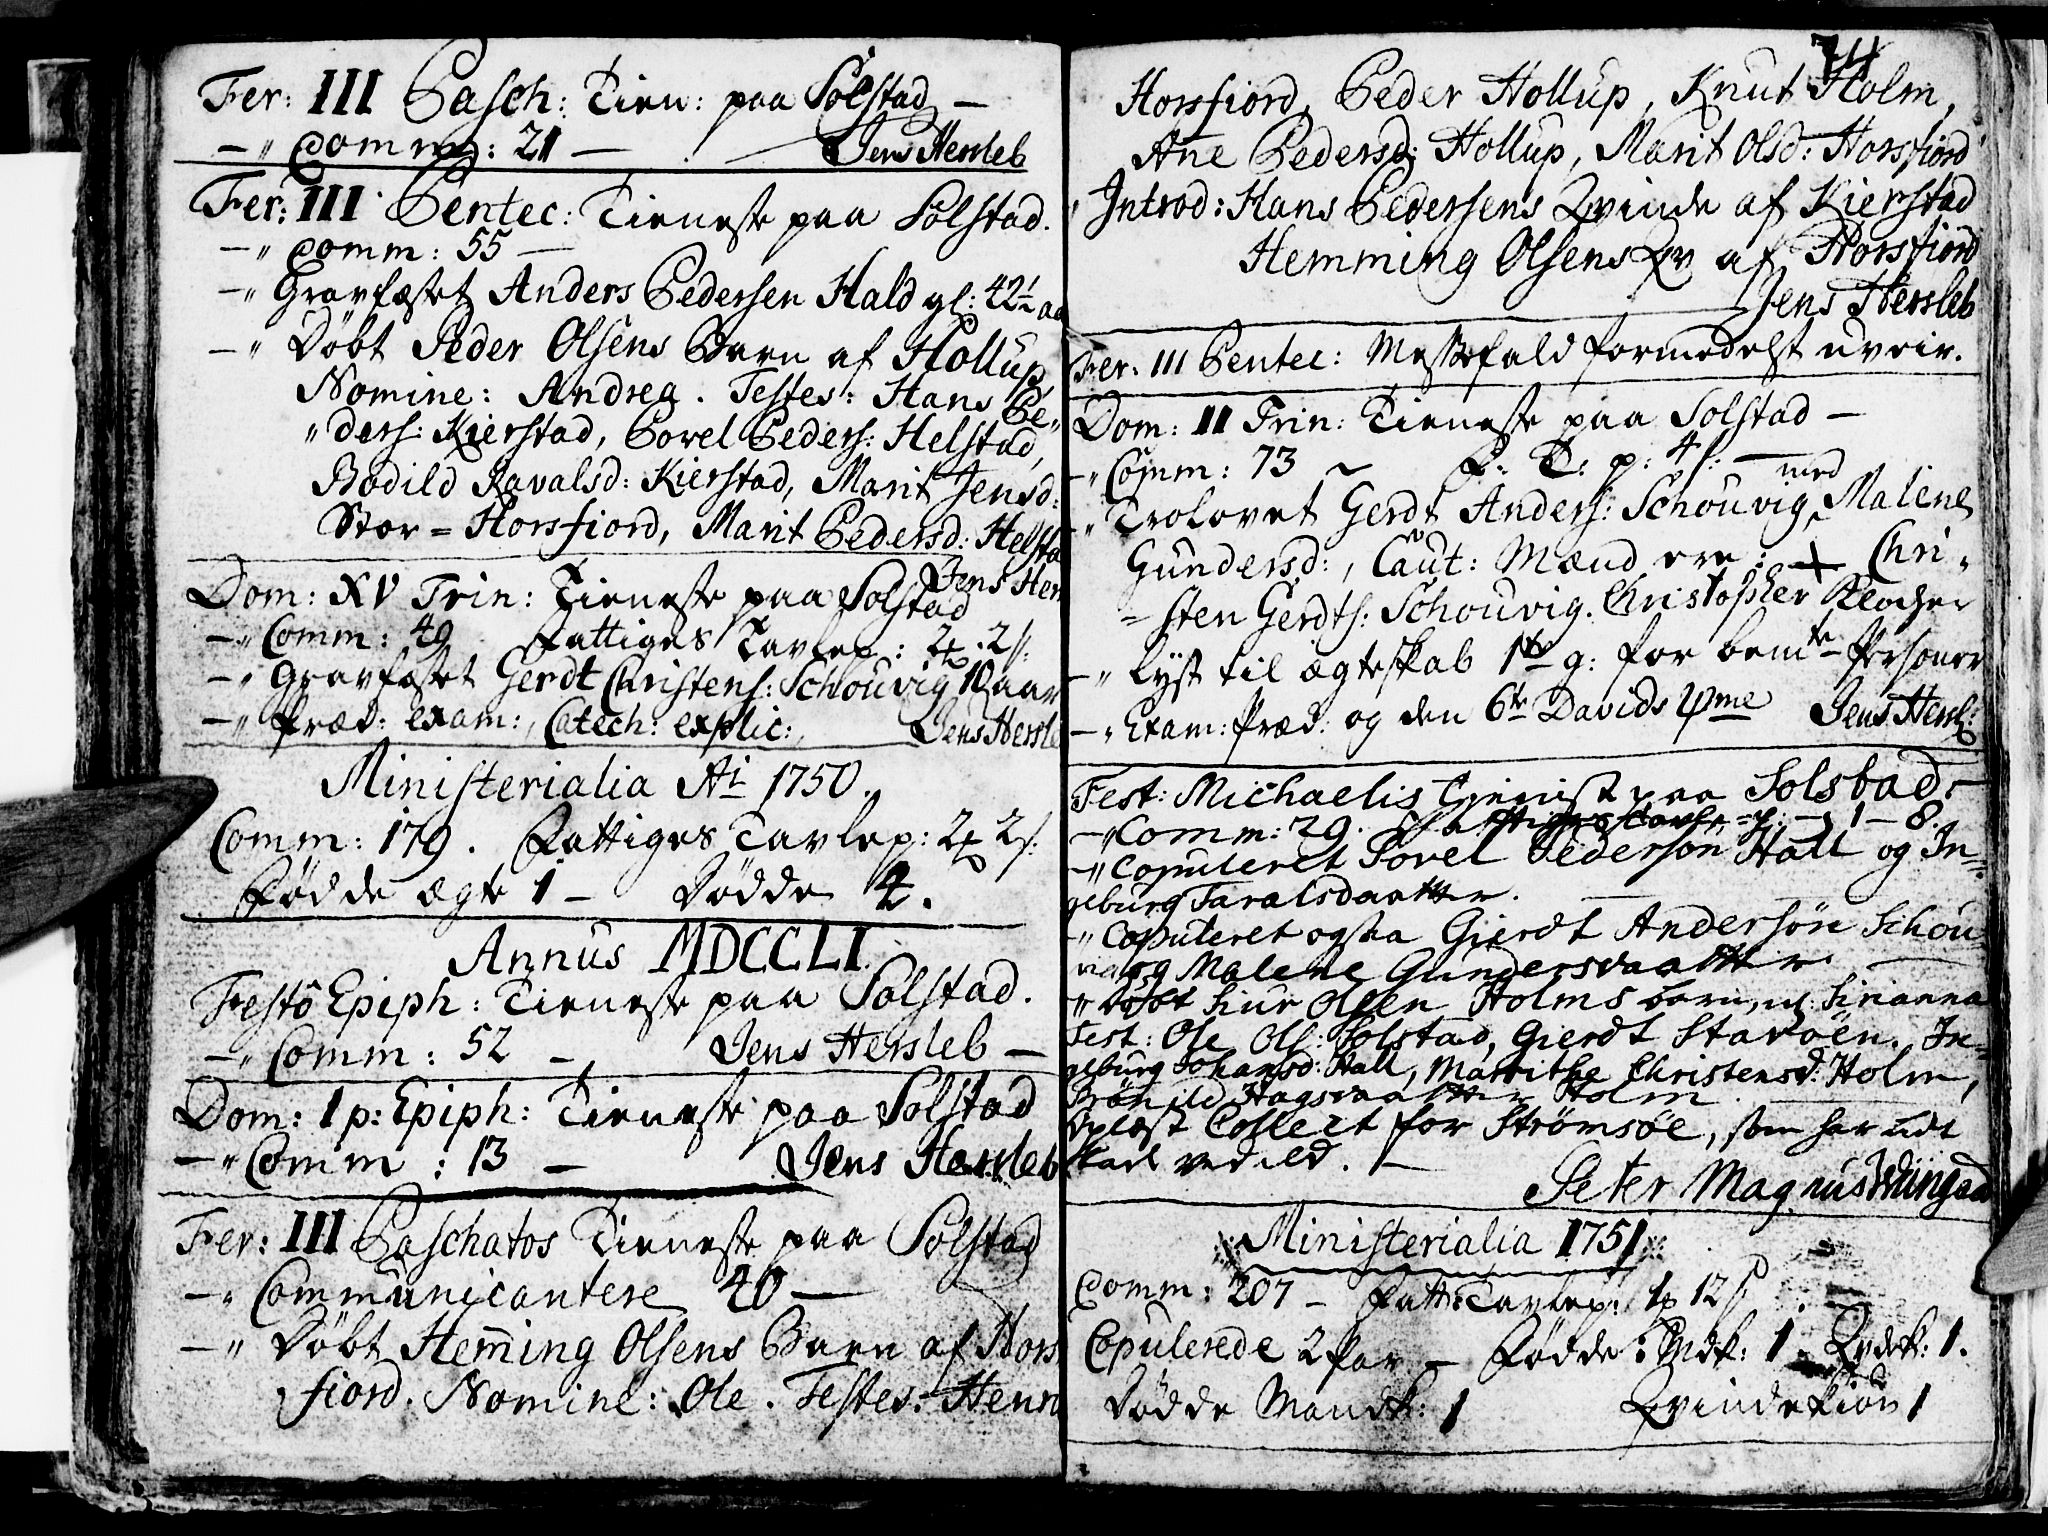 Fer: III Pasch: Tien: paa Solstad –
–„ Comm: 21 – Jens Hersleb
Fer: III Pentec: Tieneste paa Solstad.
–„ Comm: 55 –
–„ Gravfæstet Anders Pedersen Hald gl: 42½ aa
–„ Döbt Peder Olsens Barn af Hollup,
Nomine: Andrea. Testes: Hans Pe„
„ders: Kierstad, Povel Peders: Helstad,
Bodild Ravalsd: Kierstad, Marit Jensd:
Stor=Horsfiord, Marit Pedersd: Helsta
Jens Her
Dom: XV Trin: Tieneste paa Solstad
–„ Comm: 49 Fattiges Tavlep: 2 2 s:
–„ Gravfæstet Gerdt Christens: Schouvig 10 aar
–„ Præd: exam:, Catech: explic:, Jens Hersle
Ministerialia Ai 1750.
Comm: 179. Fattiges Tavlep: 2 2 s:
Födde ægte 1 – Dödde 2.
Annus MDCCLI.
Festô Epiph: Tieneste paa Solstad.
–„ Comm: 52 – Jens Hersleb –
Dom: 1 p: Epiph: Tieneste paa Solstad
–„ Comm: 13 – Jens Hersleb
Fer: III Paschatos Tieneste paa Solstad
–„ Communicantere 40 –
–„ Döbt Heming Olsens Barn af Hors
fiord. Nomine: Ole. Testes: Henn
74
Horsfiord, Peder Hollup, Knut Holm,
Ane Pedersd: Hollup, Marit Olsd: Horsfiord
„ Introd: Hans Pedersens Qvinde af Kierstad
Hemming Olsens Qv af Horsfiord
Jens Hersleb
Fer: III Pentec: Messefald formedelst uveir.
Dom: II Trin: Tieneste paa Solstad –
–„ Comm: 73 ~ F: T: p: 4 s: –
–„ Trolovet Gerdt Anders: Schouvig med Malene
Gundersd:, Caut: Mænd ere: Chri„
=sten Gerdts: Schouvig. Christopher Klocker
–„ lyst til ægteskab 1te g: for bemte Personer
–„ Exam: Præd: og den 6te Davids ψme Jens Hersl:
Fest: Michaelis Tienist paa Solstad –
–„ Comm: 29. Fattiges tavle p: – 1 – 8.
–„ Copuleret Povel Pederson Hall og In„
geburg Taralsdaatter.
–„ Copuleret ogsaa Gierdt Andersön Schou„
vig og Malene Gundersdaatter –
–„ Döbt Siur Olsen Holms barn, n: Sirianna
Test: Ole Ols: Solstad, Gierdt Stavöen. In„
geburg Johansd: Hall, Marrithe Christensd: Holm,
Brönild Hagsdaatter Holm.
Oplæst Collect for Strömsöe, som har lidt
skade ved ild. –
Peter Magnus Wiingaa
Ministerialia 1751
Comm: 207 – Fatt: Tavlep: 1 12 s
Copulerede 2 Par – Födde: Mdk: 1. Qvdek: 1.
Dödde Mandk: 1 Qvindekiön 1